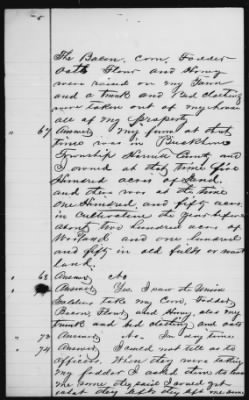 The Bacon, Corn, Fodder
Oats Flour and Honey
were raised on my Farm
and a trunk and Bed clothing
were taken out of my house
all of my property
67 Answer my farm at that
time was in
Township County and
I owned at that time five
Hundred acres of Land.
and there was at the time
One Hundred, and fifty acres
in cultivation the year before
about two hundred acres of
Woodland and one hundred
and fifty in old fields or waste
land.
68 Answer No
Answer Yes. I saw the Union
Soldiers take my Corn, Fodder,
Bacon, Flour, and Honey, also my
trunk and bed clothing and oats
73 Answer No. In day time
74 Answer I could not tell as to
officers. When they were taking
my fodder I asked them to leave
me some they said I would get
what they left they left me some